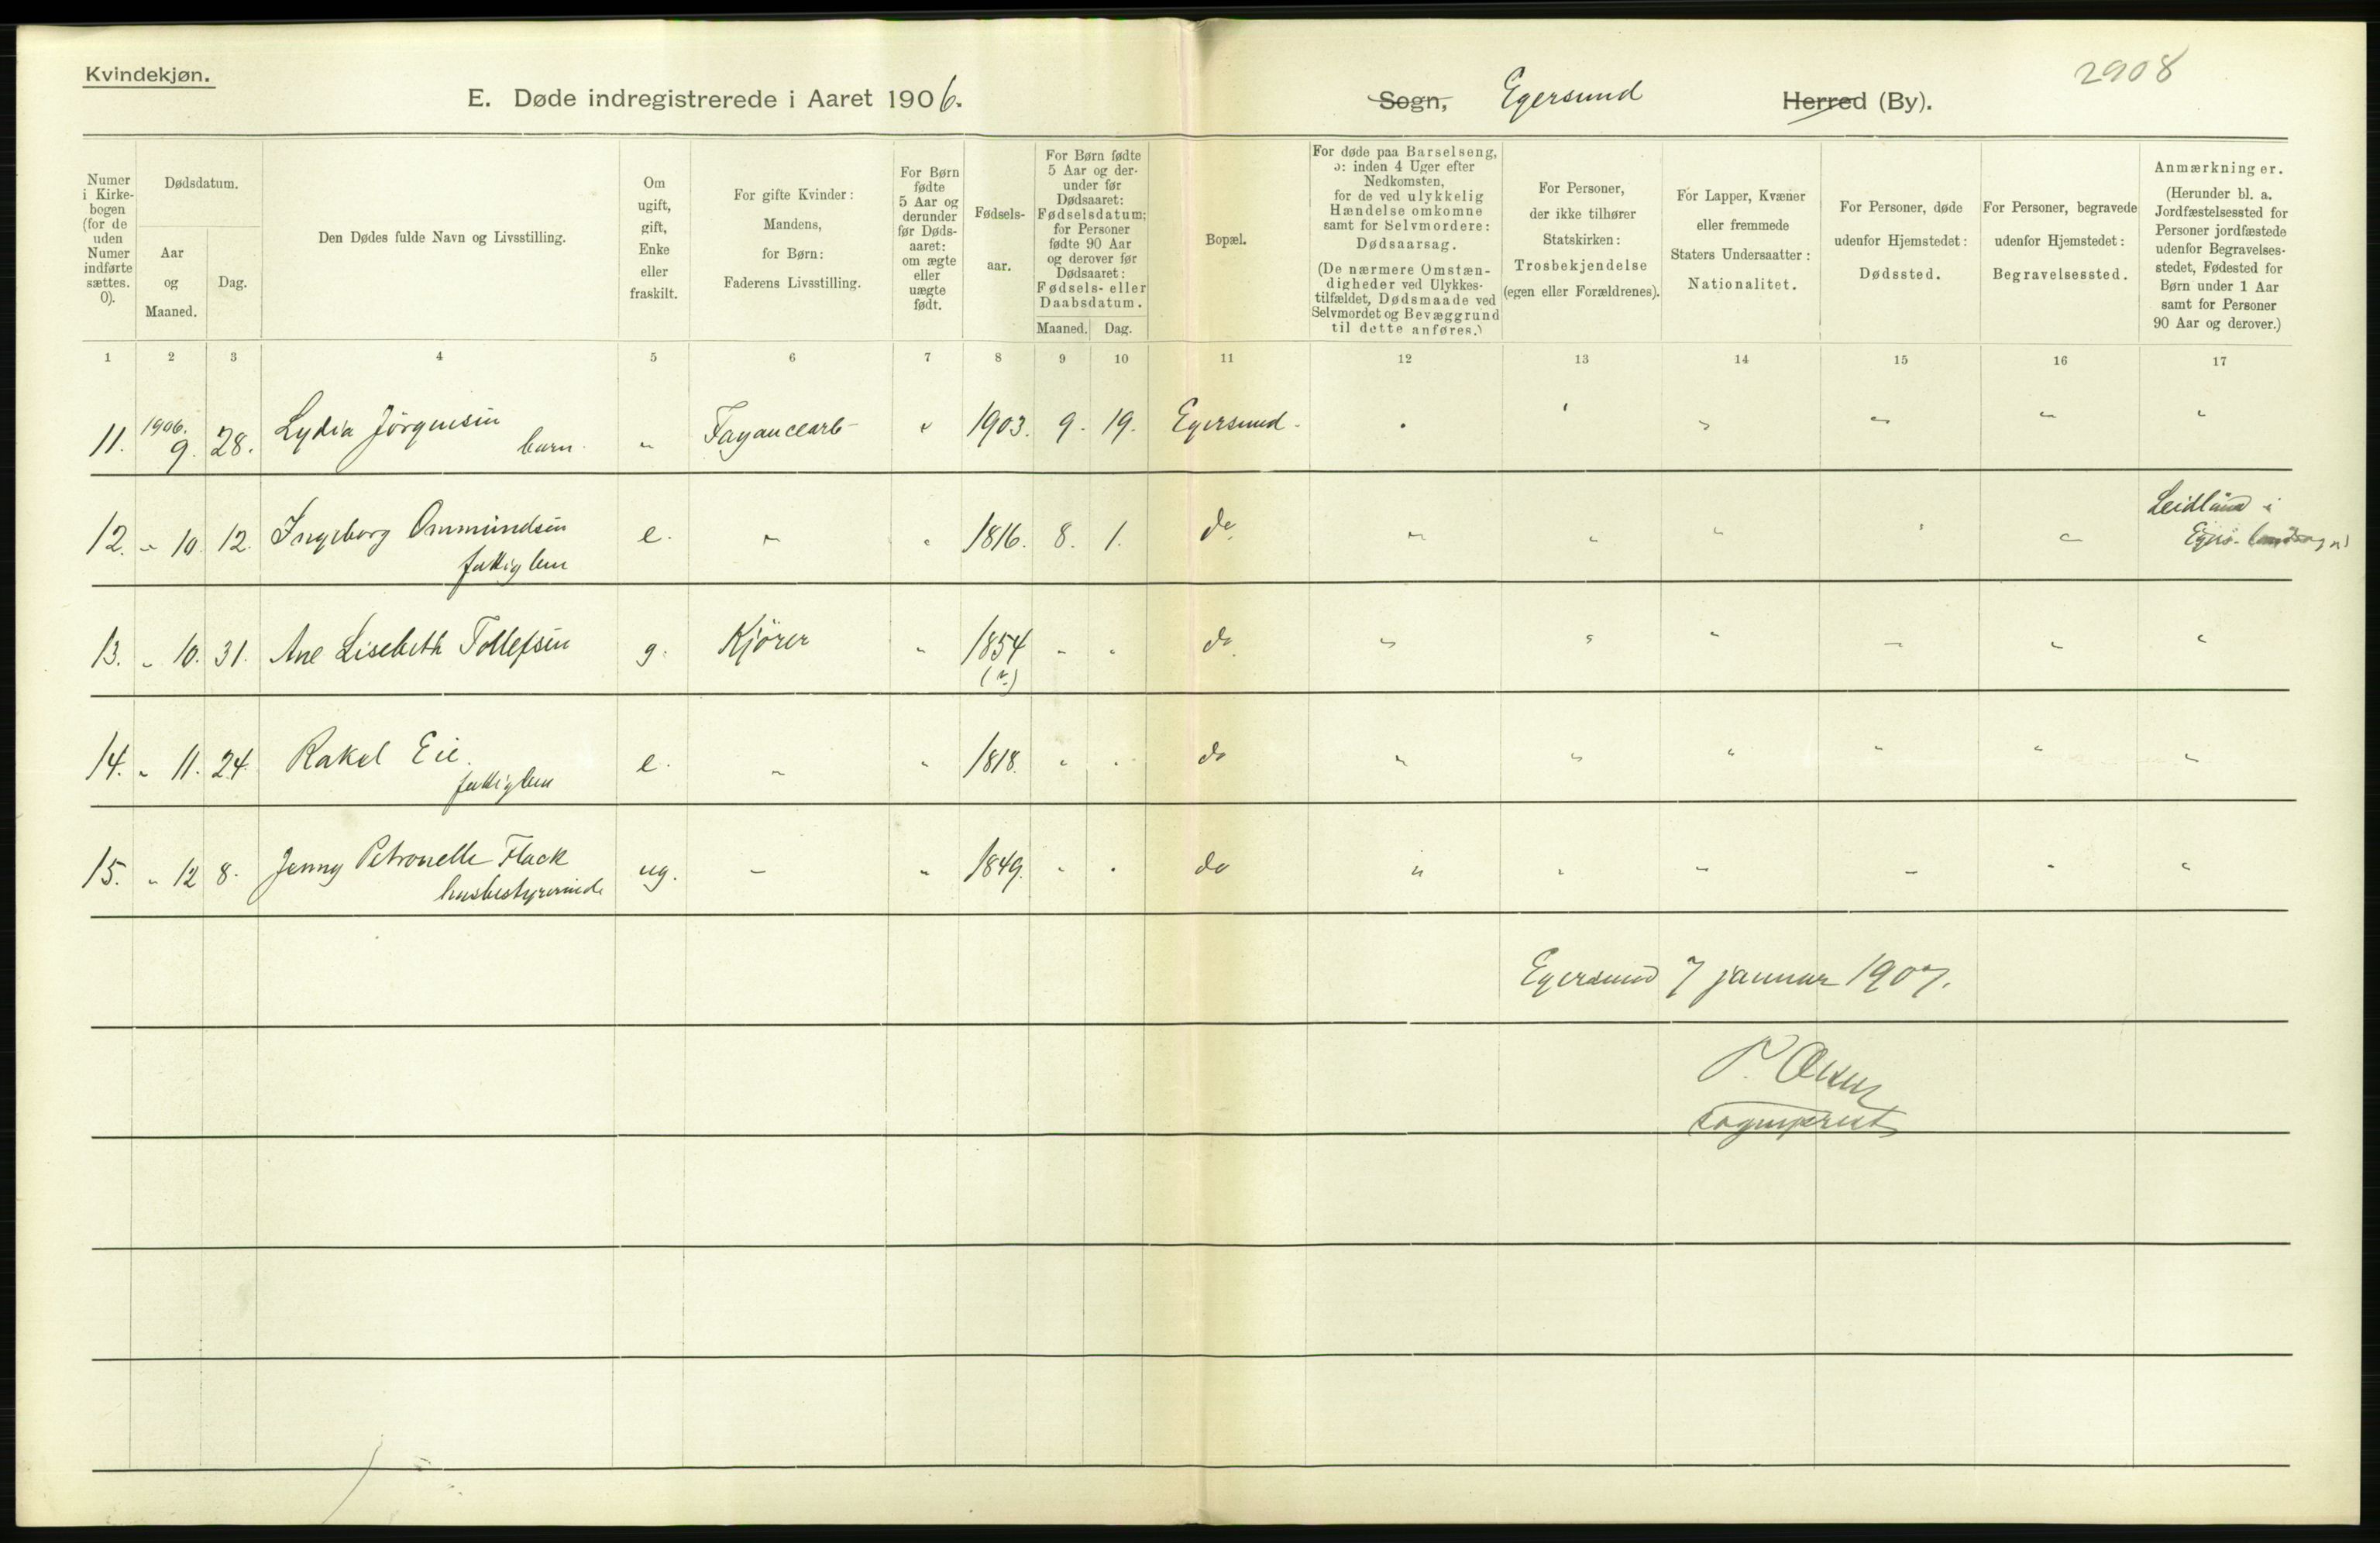 Kvindekjøn.
2908
E. Døde indregistrerede i Aaret 1906.
Sogn, Egersund Herred (By).
Numer i Kirke-bogen (for de uden Numer indførte sættes. 0).
Dødsdatum.
Aar og Maaned.
Dag.
Den Dødes fulde Navn og Livsstilling.
Om ugift, gift, Enke eller fraskilt.
For gifte Kvinder: Mandens, for Børn: Faderens Livsstilling.
For Børn fødte 5 Aar og derunder før Døds-aaret: om ægte eller uægte født.
Fødsels-aar.
For Børn fødte 5 Aar og der-under før Dødsaaret: Fødselsdatum; for Personer fødte 90 Aar og derover før Dødsaaret: Fødsels- eller Daabsdatum.
Maaned. Dag.
Bopæl.
For døde paa Barselseng, ɔ: inden 4 Uger efter Nedkomsten, for de ved ulykkelig Hændelse omkomne samt for Selvmordere: Dødsaarsag.
(De nærmere Omstæn-digheder ved Ulykkes-tilfældet, Dødsmaade ved Selvmordet og Bevæggrund til dette anføres.)
For Personer, der ikke tilhører Statskirken: Trosbekjendelse (egen eller Forældrenes).
For Lapper, Kvæner eller fremmede Staters Undersaatter: Nationalitet.
For Personer, døde udenfor Hjemstedet: Dødssted.
For Personer, begravede udenfor Hjemstedet: Begravelsessted.
Anmærkninger.
(Herunder bl. a. Jordfæstelsessted for Personer jordfæstede udenfor Begravelses-stedet, Fødested for Børn under 1 Aar samt for Personer 90 Aar og derover.)
1 2 3 4 5 6 7 8 9 10 11 12 13 14 15 16 17
11. 1906. 9. 28. Lydia Jörgensen barn " Fayancearb " 1903. 9. 19. Egersund
12. " 10. 12. Ingeborg Ommundsen fattiglem e. " " 1816. 8. 1. do. Leidland i
13. " 10. 31. Ane Lisebeth Tollefsen g. Kjörer " 1854 (?) " " do.
14. " 11. 24. Rakel Eie. fattiglem e. " " 1818. " " do
15. " 12 8. Jenny Petronelle Flack husbestyrerinde ug. " " 1849. " " do
Egersund 7 januar 1907.
sogneprest